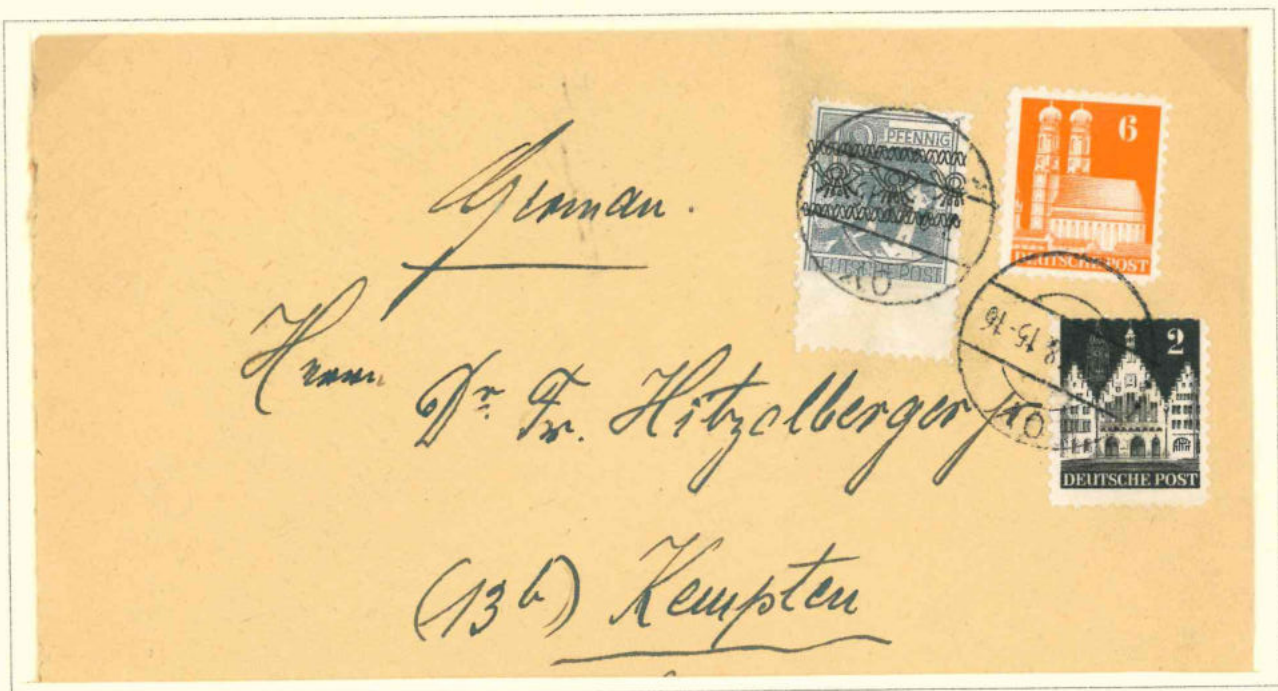 PFENNIG
DEUTSCHE POST
6
DEUTSCHE POST
8 15-16
2
DEUTSCHE POST
Herrn
Dr. Fr. Hitzelberger jr.
(13b) Kempten